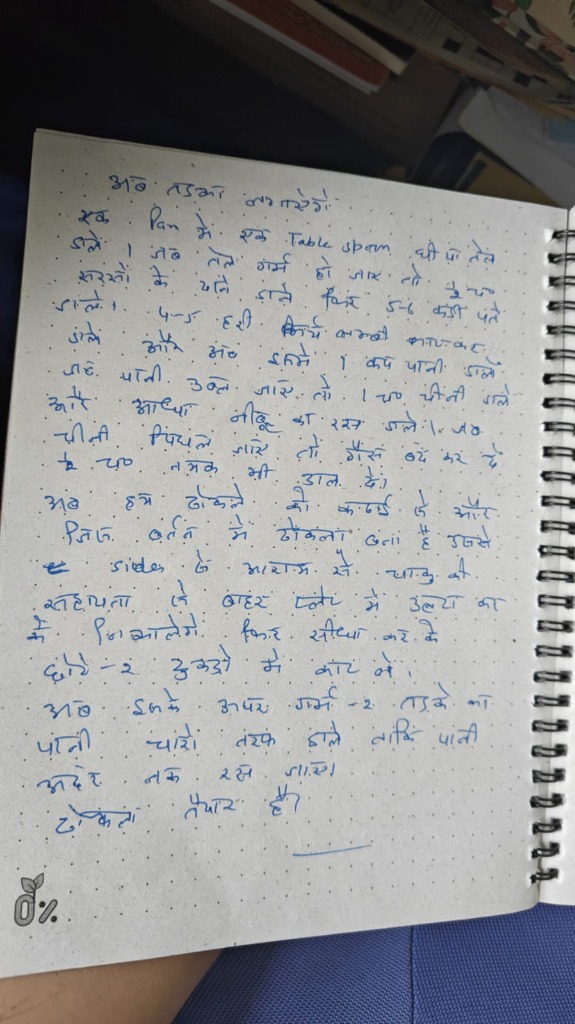 अब तड़का लगाएंगे
एक Pan में एक Table spoon घी या तेल
डाले । जब तेल गर्म हो जाए तो
सरसों के डाले फिर 5-6 कड़ी पत्ते
डाले। 4-5 हरी मिर्च लम्बी काटकर
डाले और अब इसमें 1 कप पानी डालें
जब पानी उबल जाए तो 1 च० चीनी डाले
और आधा नींबू का रस डाले । जब
चीनी पिघल जाए तो गैस बंद कर दे
च० नमक भी डाल दे।
अब हम ढोकले को और
जिस बर्तन में ढोकला बना है उसके
sides से आराम से चाकू की
सहायता से बाहर प्लेट में उल्टा कर
के निकालेंगे फिर सीधा कर के
छोटे-२ टुकड़ो में काट ले।
अब इसके उपर गर्म-२ तड़के का
पानी चारो तरफ डाले ताकि पानी
अंदर तक रस जाए।
ढोकला तैयार है।
0%